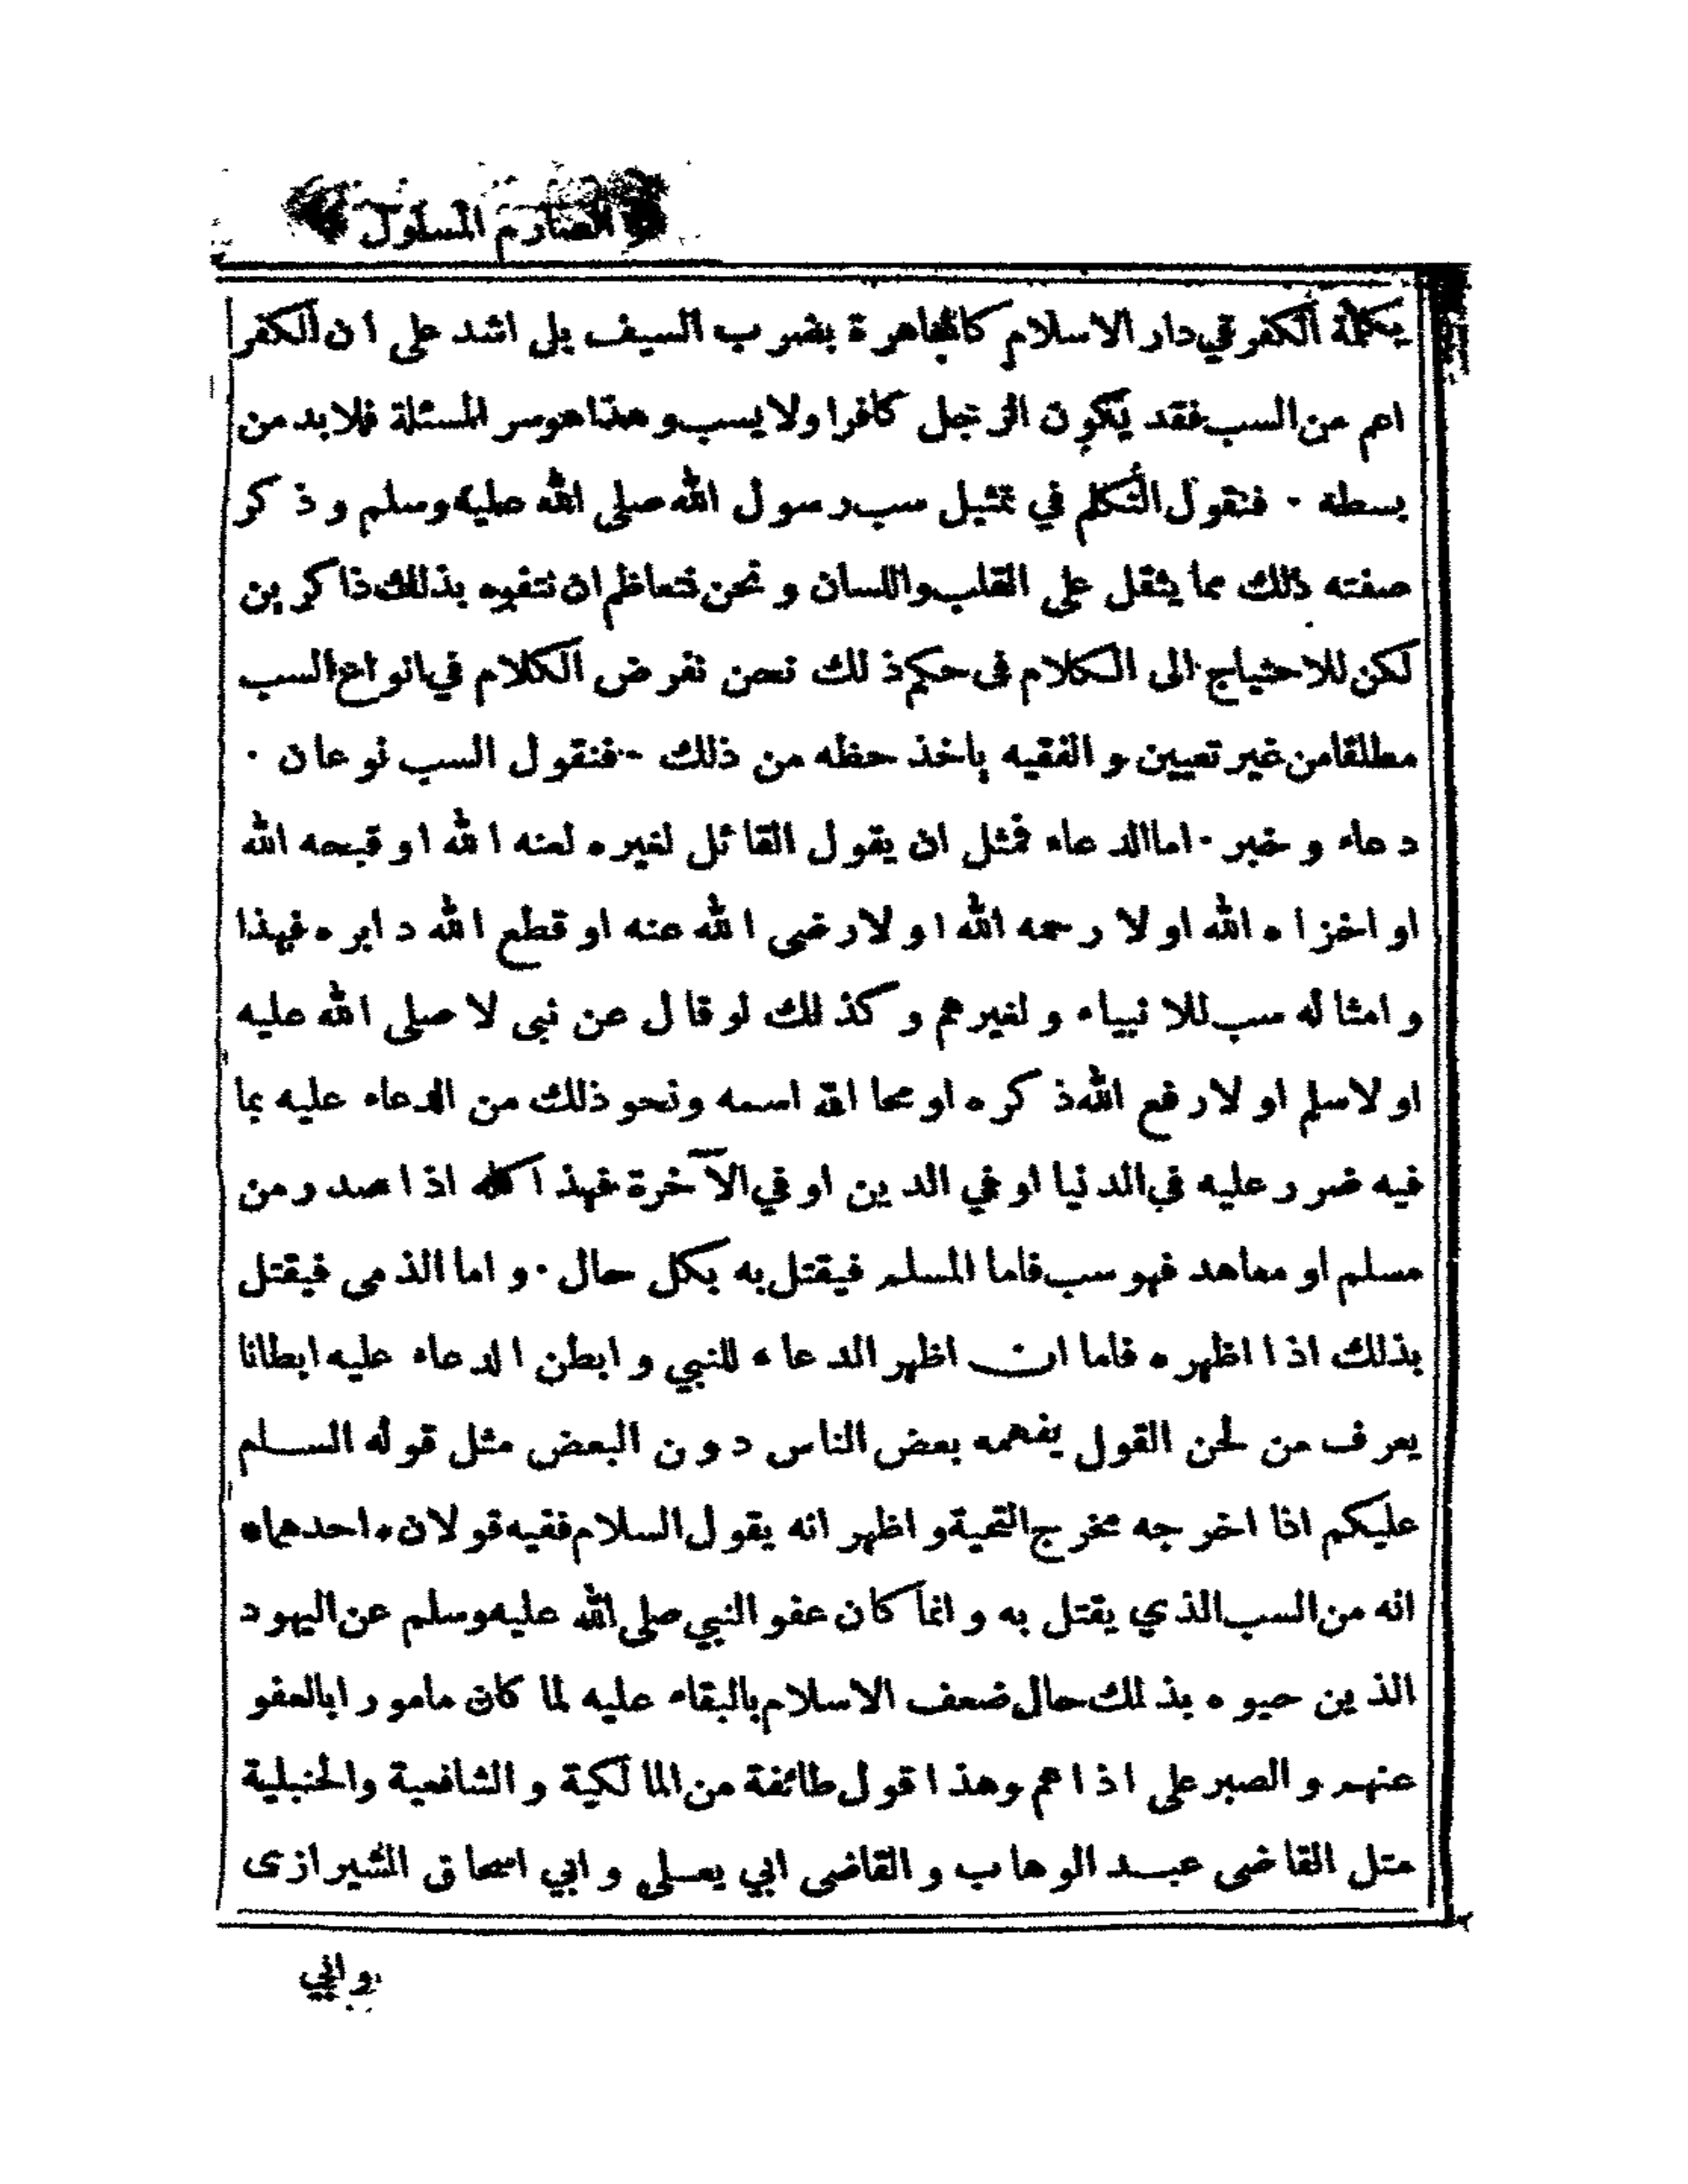 الصارم المسلول
بكلمة الكفر في دار الاسلام كالمجاهرة بضرب السيف بل اشد على ان الكفر
اعم من السب فقد يكون الرجل كافرا ولا يسب و هذا هو سر المسئلة فلا بد من
بسطه ٠ فنقول التكلم في تمثيل سب رسول الله صلى الله عليه وسلم و ذكر
صفته ذلك مما يثقل على القلب واللسان و نحن نتعاظم ان نتفوه بذلك ذاكرين
لكن للاحتياج الى الكلام فى حكم ذلك نحن نفرض الكلام في انواع السب
مطلقا من غير تعيين و الفقيه ياخذ حظه من ذلك ٠ فنقول السب نوعان ٠
دعاء و خبر ٠ اما الدعاء فمثل ان يقول القائل لغيره لعنه الله او قبحه الله
او اخزاه الله او لا رحمه الله او لا رضى الله عنه او قطع الله دابره فهذا
و امثاله سب للانبياء و لغيرهم و كذلك لو قال عن نبى لا صلى الله عليه
او لا سلم او لا رفع الله ذكره او محا الله اسمه ونحو ذلك من الدعاء عليه بما
فيه ضرر عليه في الدنيا او في الدين او في الآخرة فهذا كله اذا صدر من
مسلم او معاهد فهو سب فاما المسلم فيقتل به بكل حال ٠ و اما الذمى فيقتل
بذلك اذا اظهره فاما ان اظهر الدعاء للنبي و ابطن الدعاء عليه ابطانا
يعرف من لحن القول يفهمه بعض الناس دون البعض مثل قوله السام
عليكم اذا اخرجه مخرج التحية و اظهر انه يقول السلام ففيه قولان * احدهما *
انه من السب الذي يقتل به و انما كان عفو النبي صلى الله عليه وسلم عن اليهود
الذين حيوه بذلك حال ضعف الاسلام بالبقاء عليه لما كان مامورا بالعفو
عنهم و الصبر على اذاهم وهذا قول طائفة من المالكية و الشافعية والحنبلية
مثل القاضى عبد الوهاب و القاضى ابي يعلى و ابي اسحاق الشيرازى
و ابي